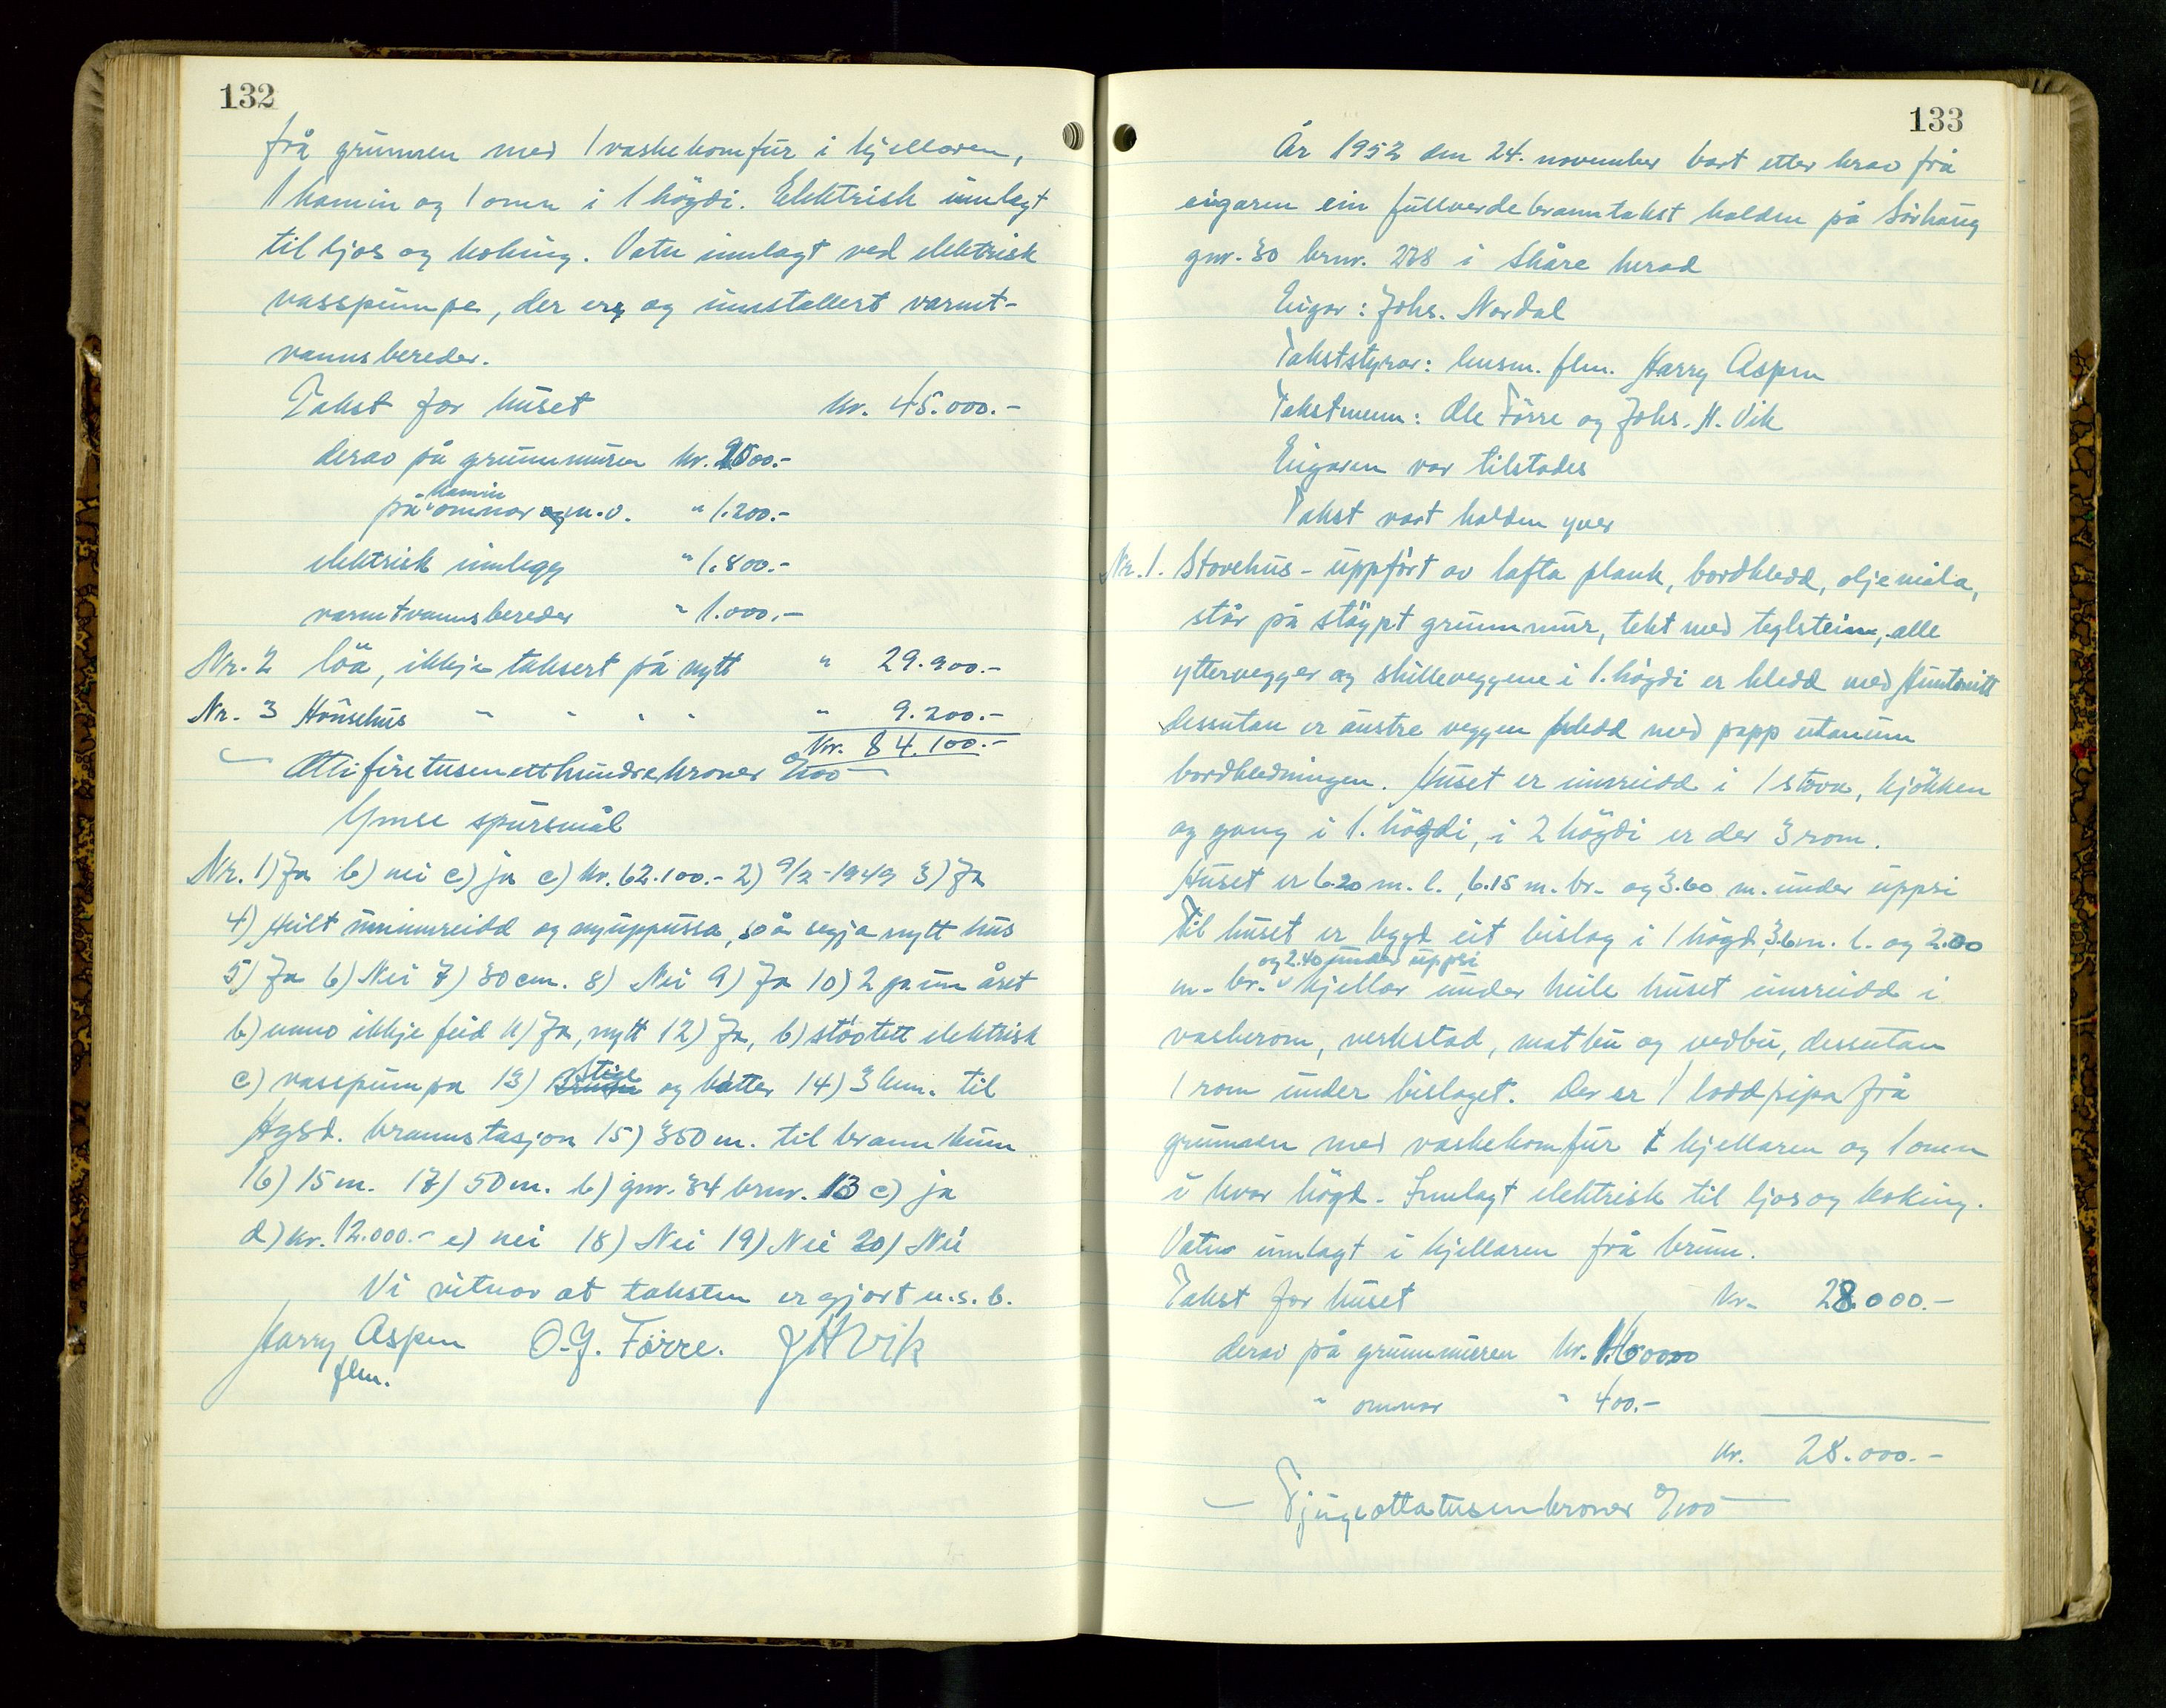 132
frå grunnen med 1 vaskekomfur i kjellaren,
1 kamin og 1 omn i 1 högdi. Elektrisk innlagt
til ljos og koking. Vatn innlagt ved elektrisk
vasspumpe, der er og innstallert varmt-
vannsbereder.
Takst for huset kr. 45.000.-
derav på grunnmuren kr. 2000.-
kamin
på omnar m.v. " 1.200.-
elektrisk innlegg " 1.800.-
varmtvannsbereder " 1.000.-
Nr. 2 löa, ikkje taksert på nytt " 29.900.-
Nr. 3 Hönsehus " " " " " 9.200.-
Kr. 84.100.-
– Åttifiretusenetthundrekroner 0/100 –
Ymse spursmål
Nr. 1) Ja b) nei c) ja c) kr. 62.100.- 2) 9/2-1949 3) Ja
4) Heilt uminnreidd og nyuppussa, so å segja nytt hus
5) Ja 6) Nei 7) 30 cm. 8) Nei 9) Ja 10) 2 ga um året
b) umno ikkje feid 11) Ja, nytt 12) Ja, b) stöotett elektrisk
c) vasspumpa 13) stige og bötter 14) 3 km. til
Hgsd. brannstasjon 15) 350 m. til brannkum
16) 15 m. 17) 50 m. b) gnr. 34 brnr. 13 c) ja
d) kr. 12.000.- e) nei 18) Nei 19) Nei 20) Nei
Vi vitnar at taksten er gjort u.s.b.
Harry Aspen O.G. Förre. J H Vik
flm.
133
År 1952 den 24. november vart etter krav frå
eigaren ein fullverdebranntakst halden på Sörhaug
gnr. 30 brnr. 278 i Skåre herad
Eigar: Johs. Nordal
Takststyrar: lensm. flm. Harry Aspen
Takstmenn: Ole Förre og Johs. H. Vik
Eigaren var tilstades
Takst vart halden yver
Nr. 1. Stovehus - uppfört av lafta plank, bordkledd, oljemåla,
står på stöypt grunnmur, tekt med teglstein, alle
yttervegger og skilleveggene i 1. högdi er kledd med Huntonitt
dessutan er austre veggen kledd med papp utanum
bordkledningen. Huset er innreidd i 1 stova, kjökken
og gang i 1. högdi, i 2 högdi er der 3 rom.
Huset er 6.20 m. l., 6.15 m. br. og 3.60 m. under uppsi
Til huset er bygd eit bislag i 1 högd, 3.6 m. l. og 2.00
og 2.40 under uppsi
m. br. Kjellar under heile huset innreidd i
vaskerom, verkstad, matbu og vedbu, dessutan
1 rom under bislaget. Der er 1 loddpipa frå
grunnen med vaskekomfur i kjellaren og 1 omn
i kvar högd. Innlagt elektrisk til ljos og koking.
Vatn innlagt i kjellaren frå brunn.
Takst for huset kr. 28.000.-
derav på grunnmuren kr. 1.6000
" omnar " 400.-
kr. 28.000.-
– Tjugeåttatusenkroner 0/100 –